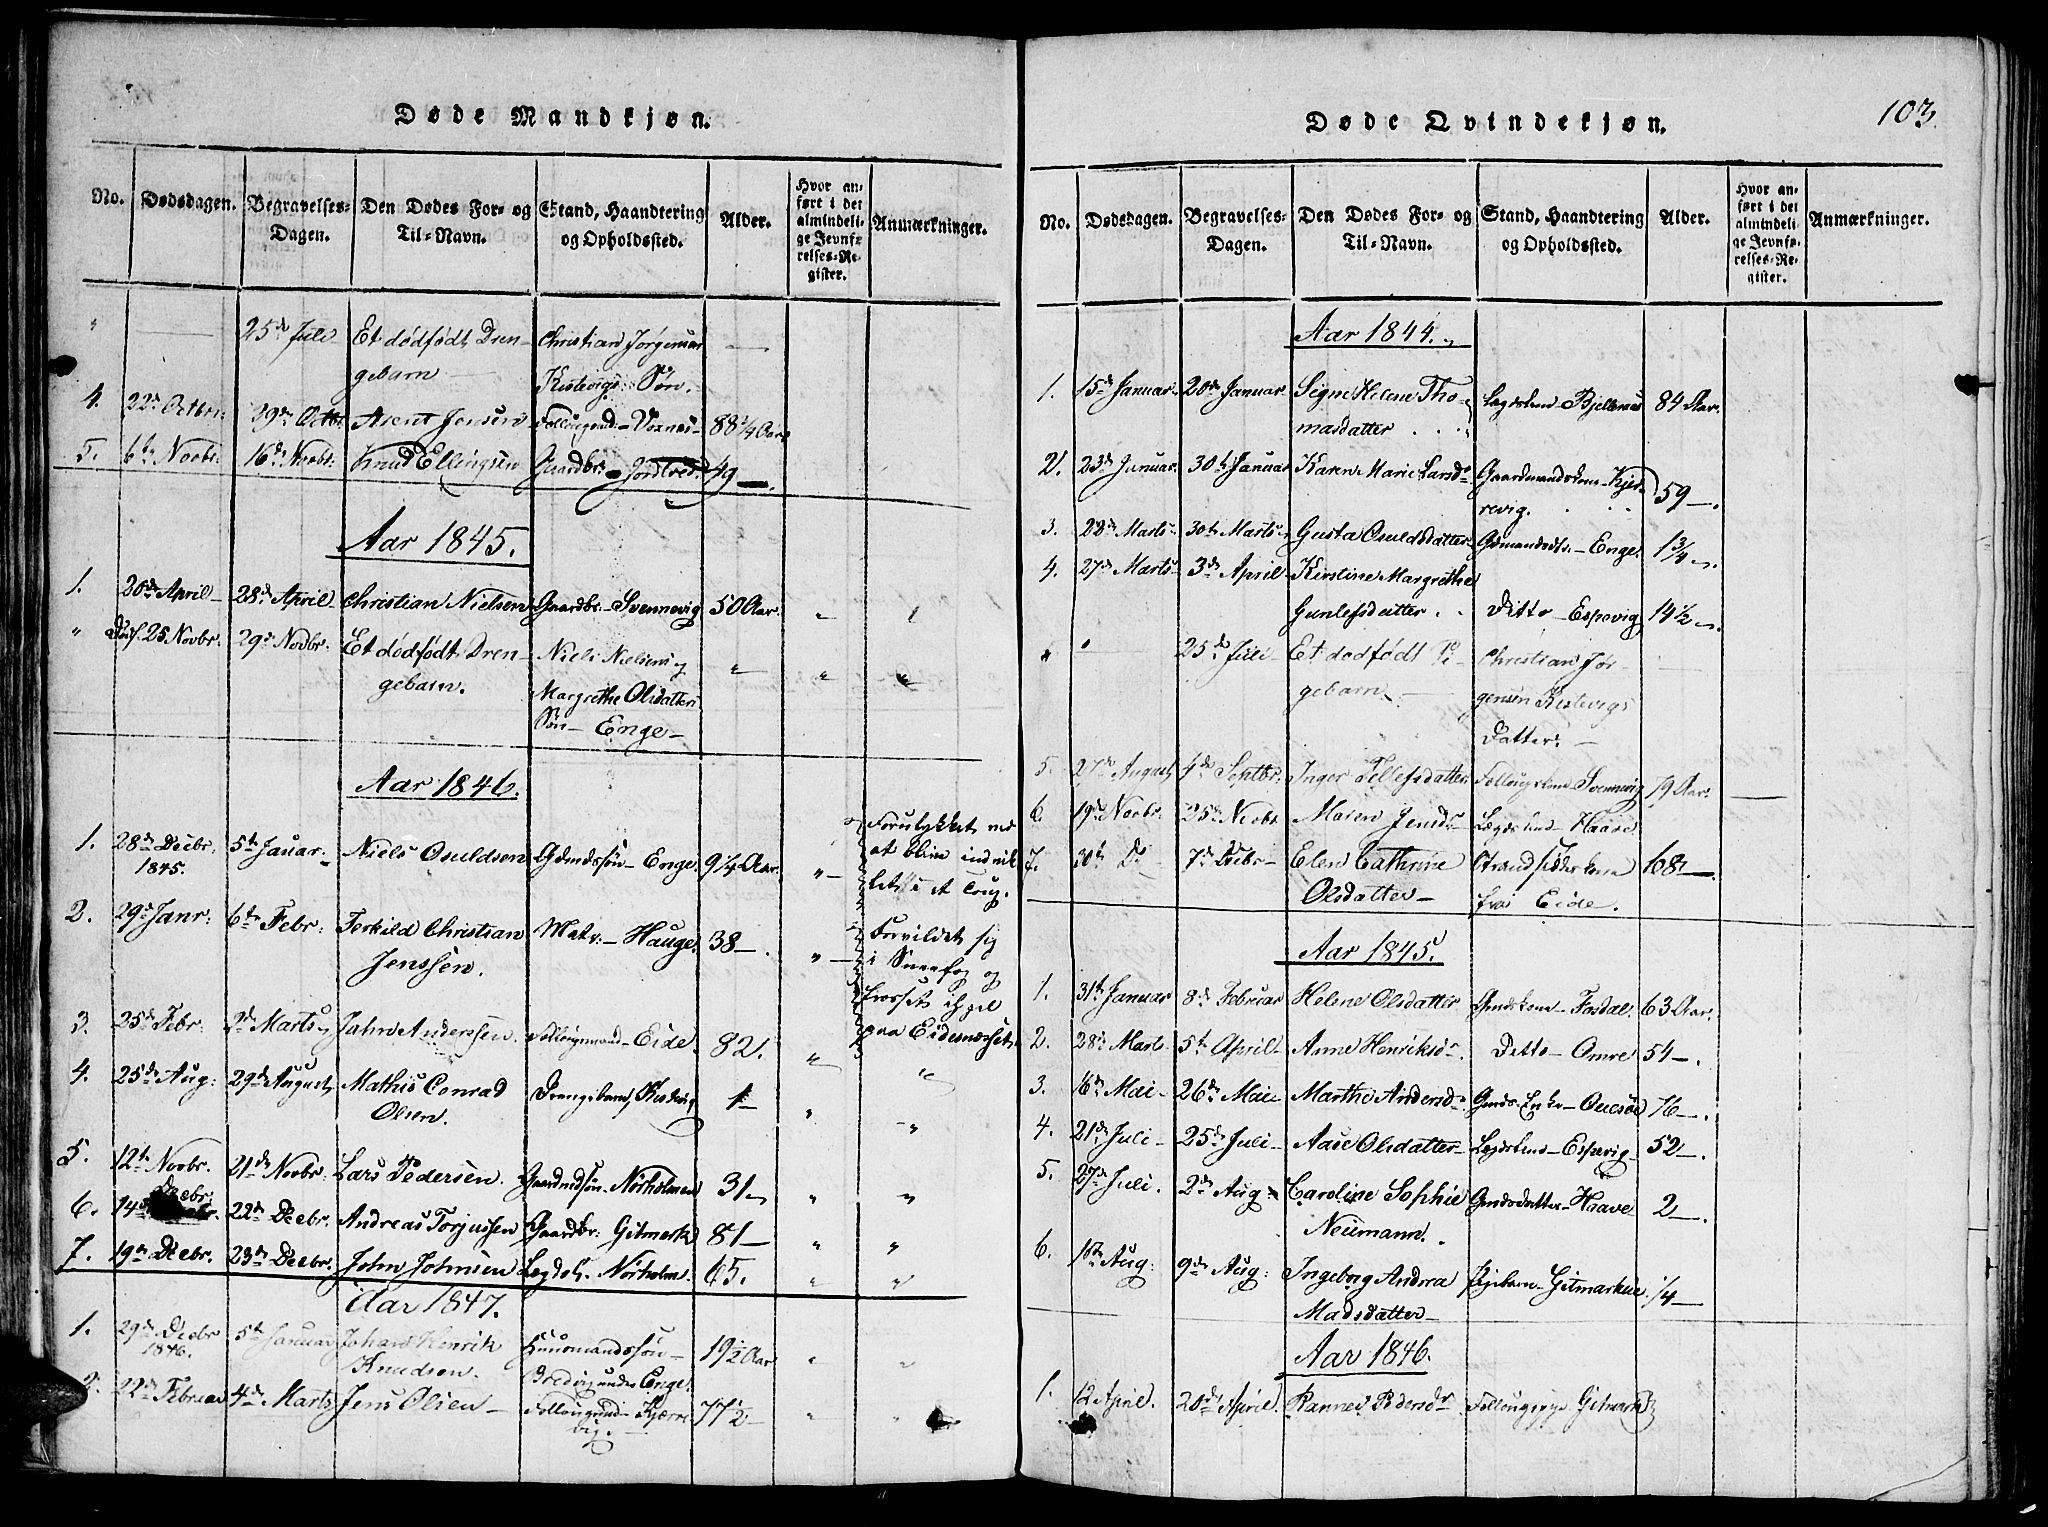 Døde Mandkjøn.
No. Dødsdagen. Begravelses-Dagen. Den Dødes For- og Til-Navn. Stand, Haandtering og Opholdssted. Alder. Hvor anført i det almindelige Jevnførelses-Register. Anmærkninger.
" — 25de Juli Et dødfødt Dren- Christian Jørgensen —
gebarn — Kistevigs Søn.
4. 22de Octbr: 29de Octbr. Arent Jensen Follougsmd – Voxnes – 88 1/4 Aar
5. 6te Novbr. 16de Novbr: Knud Ellingsen Gaardbr. – 49 —.
Aar 1845.
1. 20de April – 28de April – Christian Nielsen Gaardbr. – Svennevig 50 Aar. " "
" 25 Novbr. 29de Novbr. Et dødfødt Dren- Niels Nielsens og " " "
gebarn. Margrethe Olsdatters
Søn – Enge –
Aar 1846.
1. 28de Decbr. 5te Januar – Niels Osuldsen Gdmdssøn – Enge. 9 1/4 Aar. " – Forulykket ved
1845. at blive indvik-
let i et Toug.
2. 29de Janr: 6te Febr: Terkild Christian Matr: – Hauge. 38 —. " – Forvildet sig
Jenssen. i Sneefog og
frosset ihjel
paa Eidsnesset.
3. 25de Febr. 2de Marts Jahn Anderssen. Follougsmand – Eide. 82. " "
4. 25de Aug: 29de August Mathis Conrad Drengebarn, Kistevig 1 – " – "
Olsen.
5. 12te Novbr. 21de Novbr: Lars Pedersen. Gaardmdssøn. Nørholmen 31 – " "
6. 14de Decbr. 22de Decbr. Andreas Torjussen Gaardbr: Gitmark 81 – " "
7. 19de Decbr. 23de Decbr. John Johnsen Legdsl. Nørholm. 65. " "
Aar 1847.
1. 29de Decbr 5te Januar Johan Henrik Huusmandssøn – 19 1/2 Aar " "
1846. Knudsen. Bredvig under Enge.
2. 22de Februar 4de Marts Jens Olsen – Follougsmd – Kjerre- 77 1/2 – " "
vig. –
103.
Døde Qvindekjøn.
No. Dødsdagen. Begravelses-Dagen. Den Dødes For- og Til-Navn. Stand, Haandtering og Opholdssted. Alder. Hvor anført i det almindelige Jevnførelses-Register. Anmærkninger.
Aar 1844.
1. 15de Januar. 20de Januar Signe Helene Tho- Legdskone – Bjellenes 84 Aar.
masdatter . .
2. 23de Januar. 30te Januar Karen Marie Larsdr Gaardmandskone – Kjer- 59 —.
revig.
3. 22de Marts – 30te Marts – Gusta Osuldsdatter Gdmandsdtr. – Enge. 1 3/4 –.
4. 27de Marts 3de April – Kirstine Margrethe
Gunlefsdatter . . Ditto – Espevig 14 1/2 –.
" " 25de Juli – Et dødfødt Pi- Christian Jør-
gebarn. – gensen Kistevigs
Datter. –
5. 27de August 4de Septbr. Inger Tellefsdatter Follougskone – Svennevig 79 Aar. —
6. 19de Novbr. 25de Novbr Maren Jensdr – Haave
7. 30te Do – 7de Decbr – Elen Cathrine Strandsidderkone 68 —.
Olsdatter – fra Eide.
Aar 1845.
1. 31te Januar 8de Februar Helene Olsdatter Gmdskone – Fosdal. 63 Aar.
2. 28de Marts. 5te April – Anne Henriksdr. Ditto – Omre 54 –.
3. 16de Mai – 26de Mai Marthe Andersdr. Gmds Enke – 76 –.
4. 21de Juli – 25de Juli – Aase Olsdatter – Legdskone – Espevig. 52 –.
5. 27de Juli. 2de Aug – Caroline Sophie Gmdsdatter – Haave 2 –.
Neumann. .
6. 1ste Aug: 9de Aug: Ingeborg Andrea Pigebarn – Gitmark 1/4 –
Madsdatter –
Aar 1846.
1. 12 April. 20de April. Ranney Pedersdr Gitmark